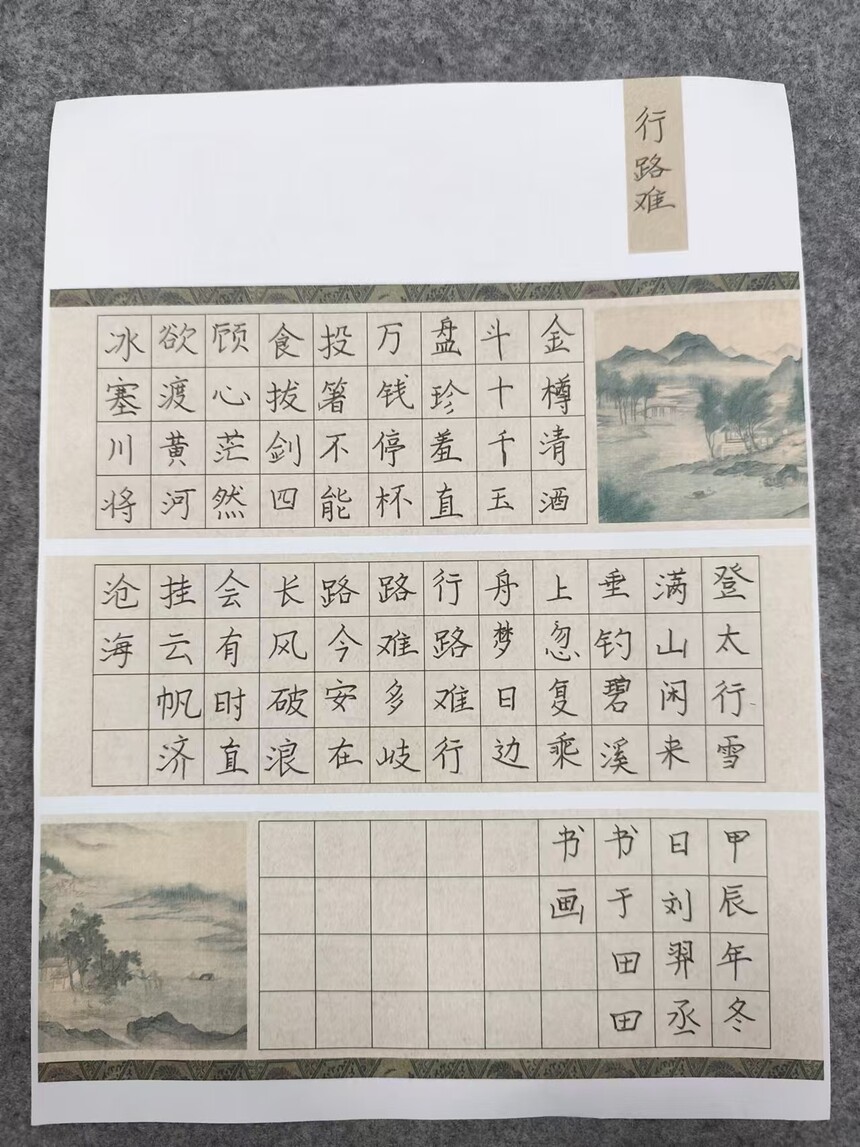 行路难
金樽清酒
斗十千玉
盘珍羞直
万钱停杯
投箸不能
食拔剑四
顾心茫然
欲渡黄河
冰塞川将
登太行雪
满山闲来
垂钓碧溪
上忽复乘
舟梦日边
行路难行
路难多岐
路今安在
长风破浪
会有时直
挂云帆济
沧海
甲辰年冬
日刘羿丞
书于田田
书画